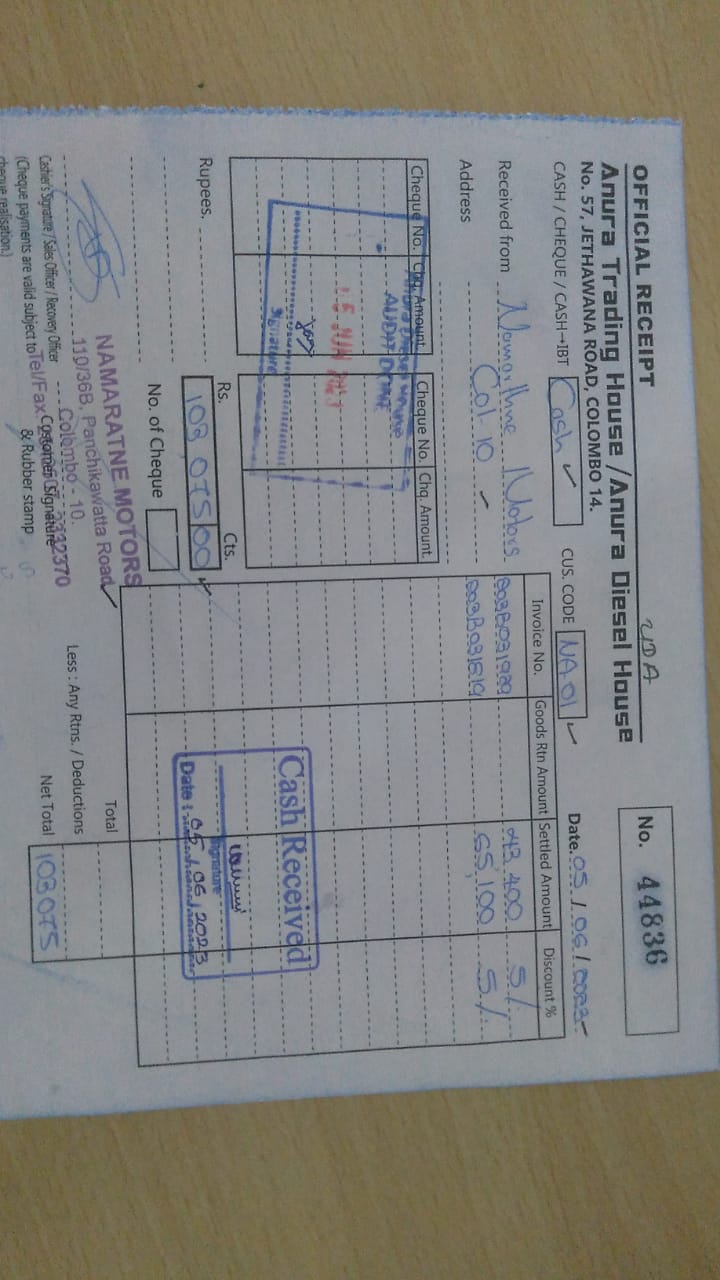 OFFICIAL RECEIPT
UDA
No. 44836
Anura Trading House / Anura Diesel House
No. 57, JETHAWANA ROAD, COLOMBO 14.
CASH / CHEQUE / CASH→IBT Cash ✓
CUS. CODE NA01 ✓
Date. 05/06/2023
Received from Motors
Address Col-10 ✓
Cheque No. Chq. Amount Cheque No. Chq. Amount
AUDIT
JUN 2023
Signature
Invoice No. Goods Rtn Amount Settled Amount Discount %
43,400 5%
65,100 5%
Cash Received
Signature
Date : 05/06/2023
Rupees.
Rs. Cts.
103,075 00 ✓
No. of Cheque
Total
Less : Any Rtns. / Deductions
Net Total 103075
NAMARATNE MOTORS
110/36B, Panchikawatta Road
Colombo - 10.
Tel/Fax: 2332370
Cashier's Signature / Sales Officer / Recovery Officer
Customer Signature
& Rubber stamp
(Cheque payments are valid subject to
cheque realisation.)